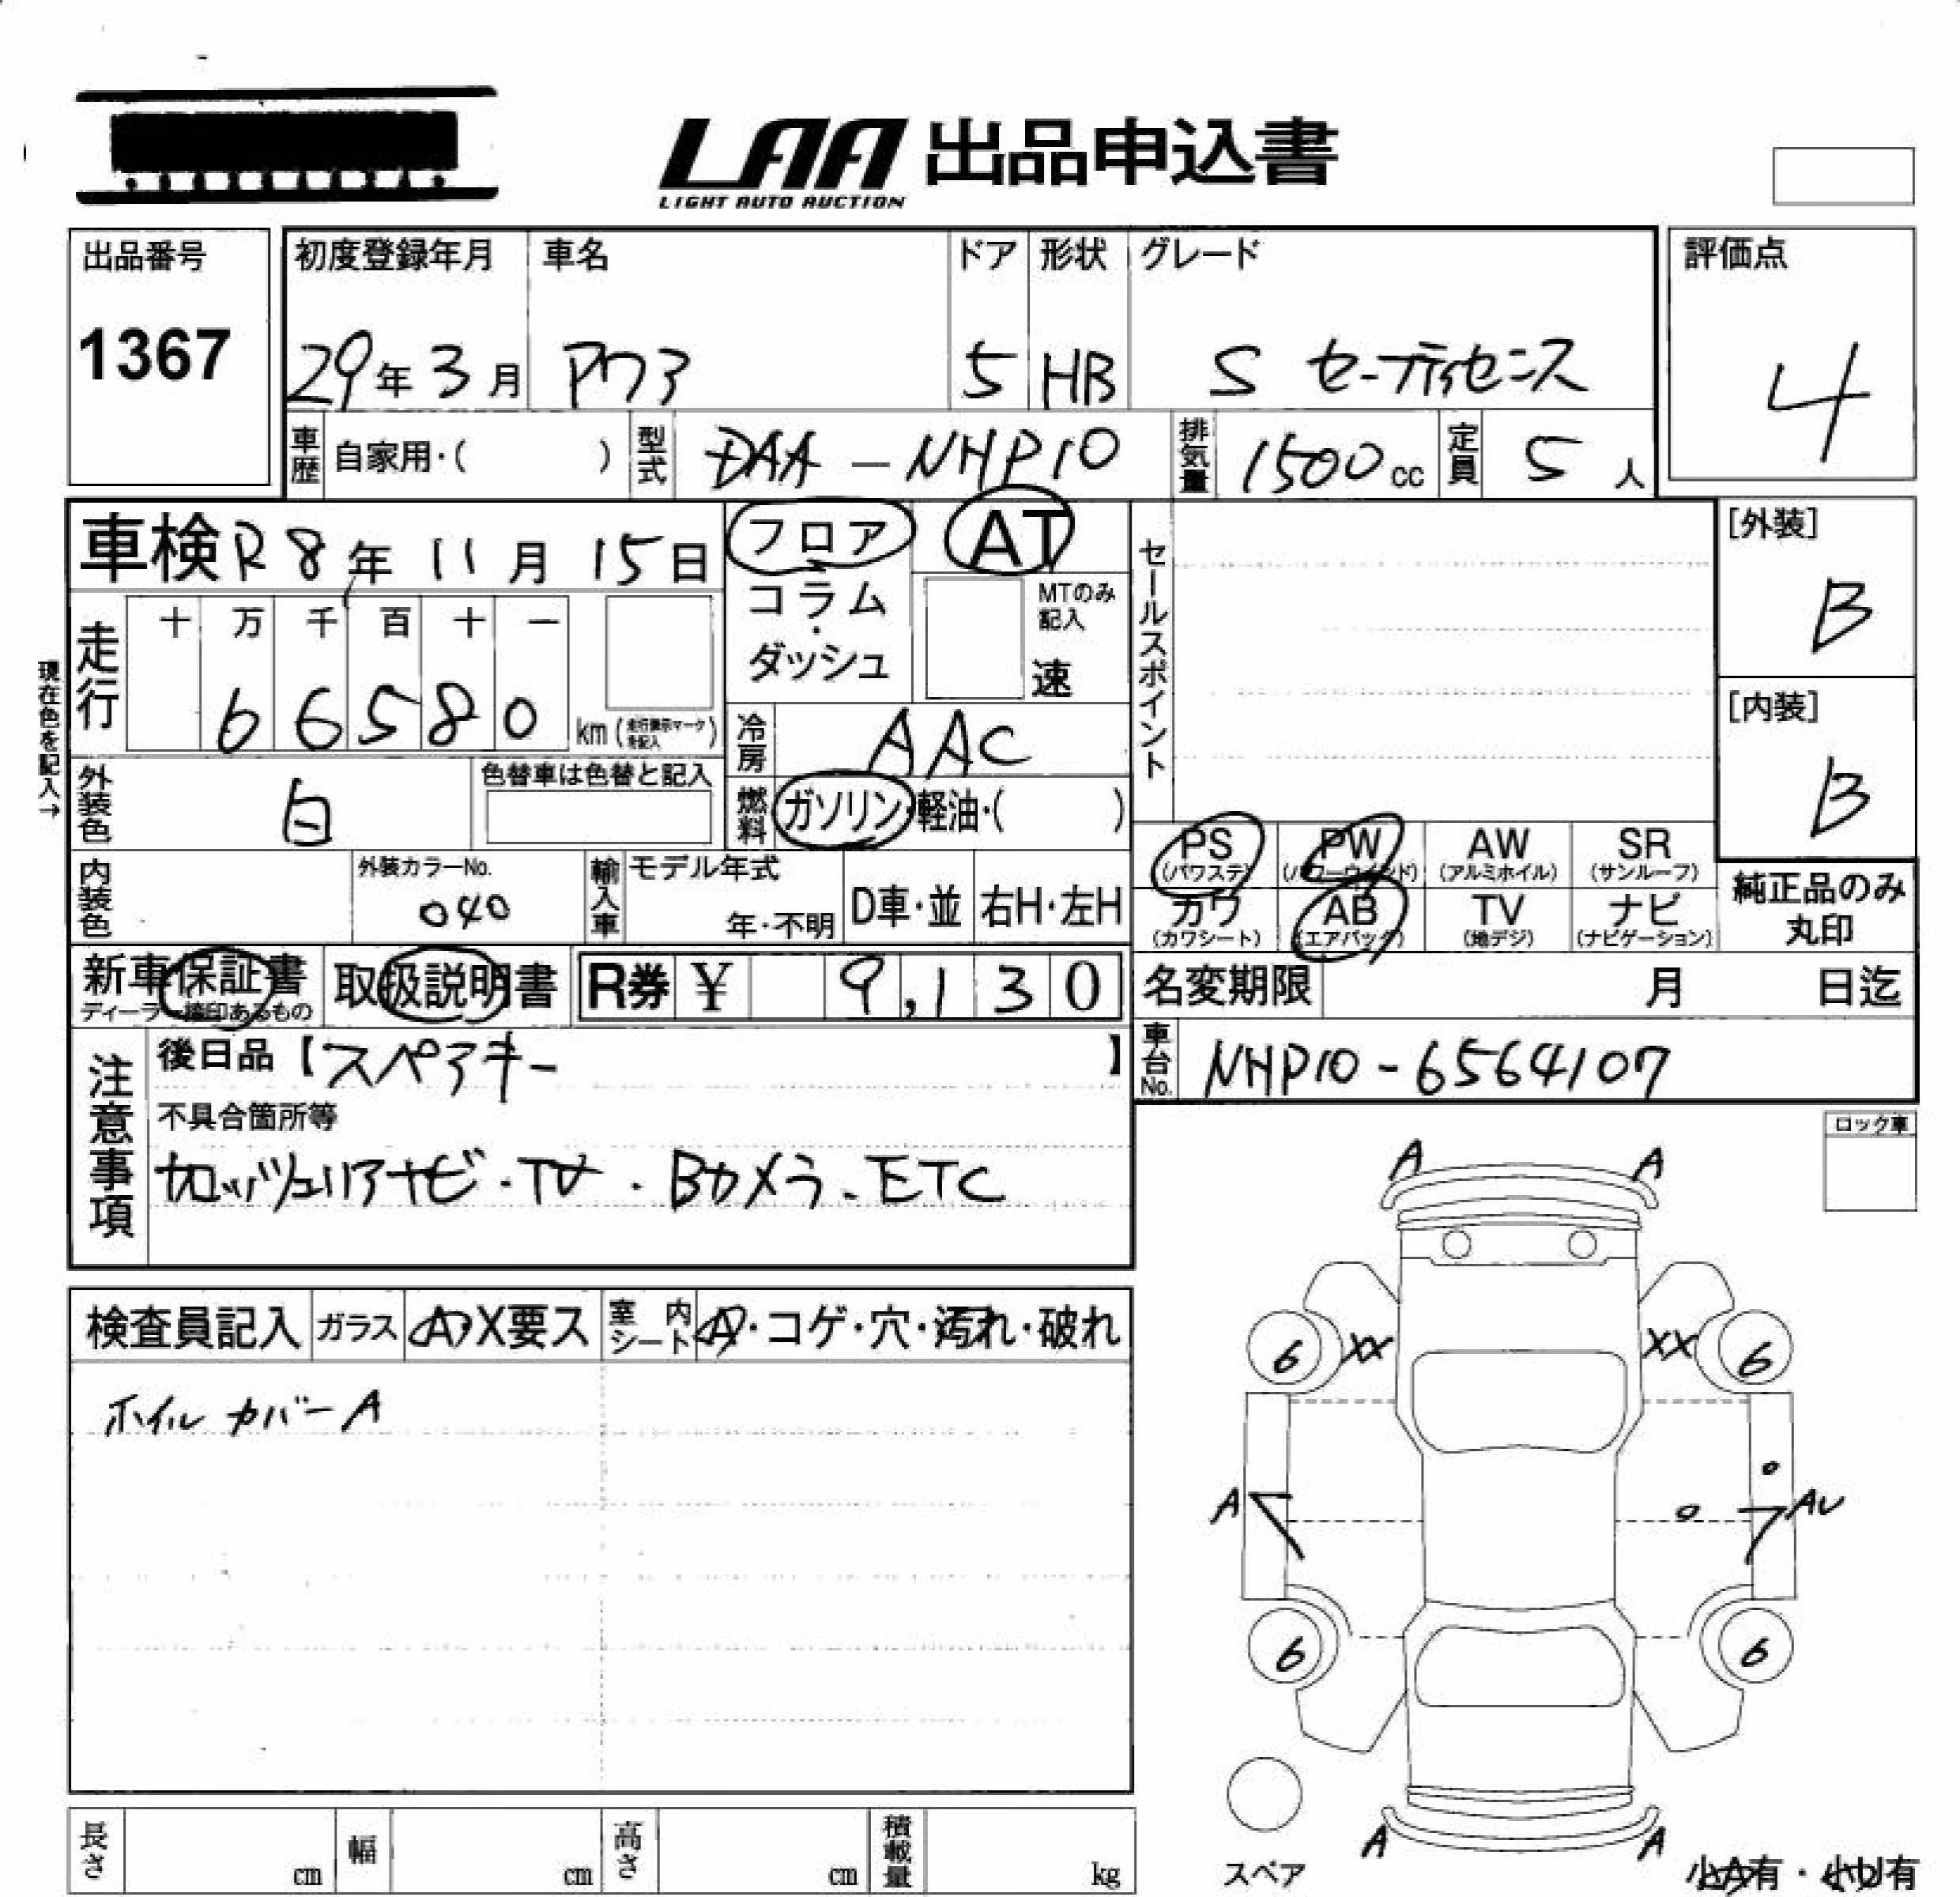 LAA 出品申込書
LIGHT AUTO AUCTION
出品番号
1367
初度登録年月
29年3月
車名
アクア
ドア
5
形状
HB
グレード
S セーフティセンス
評価点
4
車歴 自家用・( )
型式 DAA-NHP10
排気量 1500cc
定員 5人
車検 R8年11月15日
フロア
コラム
・
ダッシュ
AT
MTのみ
記入
速
セールスポイント
[外装]
B
[内装]
B
現在色を記入→
走行
十 万 千 百 十 一
6 6 5 8 0
km (走行表示マークを記入)
冷房 AAC
外装色 白
色替車は色替と記入
燃料 ガソリン・軽油・( )
内装色
外装カラーNo.
040
輸入車
モデル年式
年・不明
D車・並
右H・左H
PS
(パワステ)
PW
(パワーウインド)
AW
(アルミホイル)
SR
(サンルーフ)
カワ
(カワシート)
AB
(エアバック)
TV
(地デジ)
ナビ
(ナビゲーション)
純正品のみ
丸印
新車保証書
ディーラー捺印あるもの
取扱説明書
R券 ¥ 9,130
名変期限 月 日迄
車台No. NHP10-6564107
注意事項
後日品【スペアキー】
不具合箇所等
カロッツェリアナビ・TV・Bカメラ・ETC
ロック車
検査員記入
ガラス A・X要ス
室内シート A・コゲ・穴・汚れ・破れ
ホイルカバーA
A A
6 XX XX 6
A AU
6 6
A A
スペア
小A有・小U有
長さ cm
幅 cm
高さ cm
積載量 kg